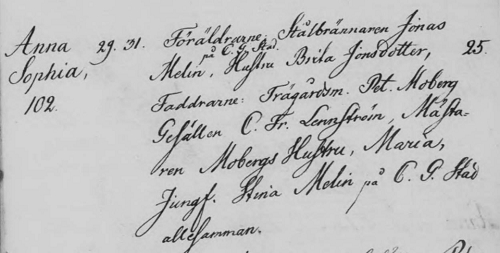 Anna 29. 31. Föräldrarne: Stålbrännaren Jonas
på C. G. Stad.
Sophia, Melin, Hustru Brita Jonsdotter, 25.
102. Faddrarne: Trägårdsm. Pet. Moberg
Gesällen C. Fr. Lennström, Mästa-
ren Mobergs Hustru, Maria,
Jungf. Stina Melin på C. G. Stad
allesamman.